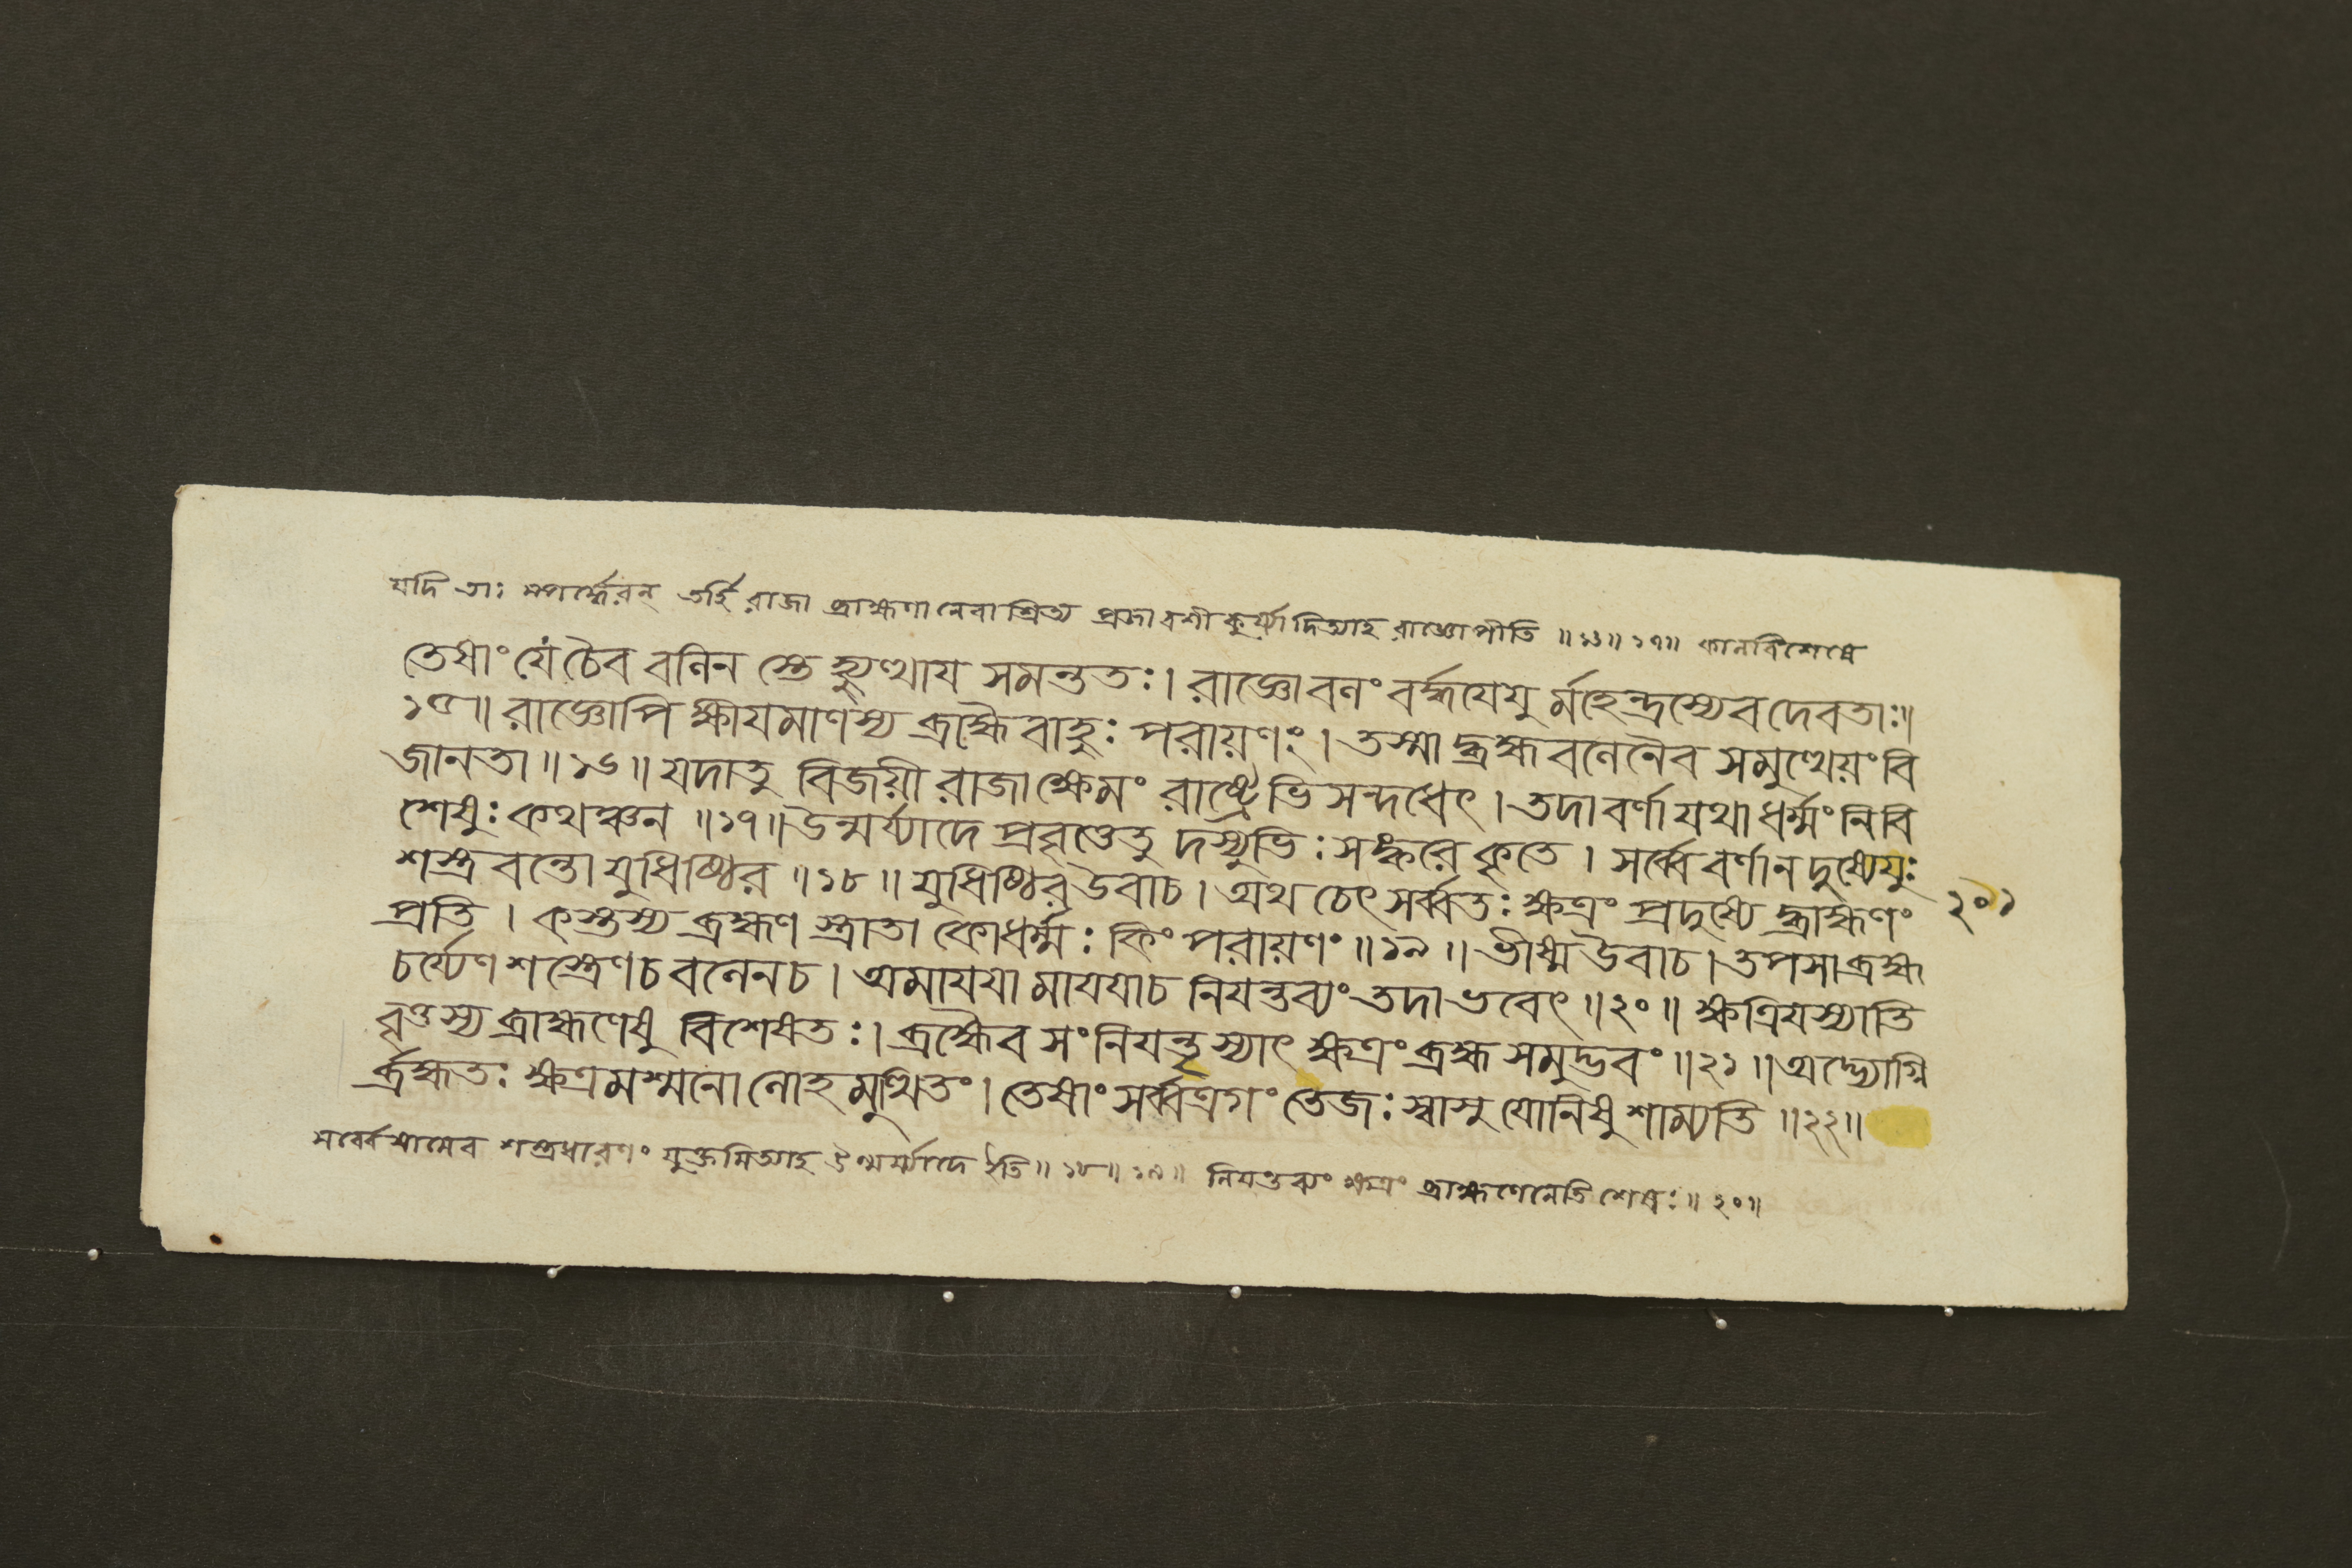 যদি তাঃ স্পর্দ্ধেরন্ তর্হি রাজা ব্রাহ্মণানেবাশ্রিত্য প্রজা বশীকুর্য্যাদিত্যাহ রাজ্ঞোপীতি ॥ ১৬ ॥ ১৭ ॥ কালবিশেষে
তেষাং যে চৈব বলিন স্তে হ্যুত্থায সমন্ততঃ। রাজ্ঞোবলং বর্দ্ধযেযু র্মহেন্দ্রস্যেব দেবতাঃ॥
১৫॥ রাজ্ঞোপি ক্ষীযমাণস্য ব্রহ্মৈবাহুঃ পরায়ণং। তস্মা দ্ব্রহ্ম বলেনৈব সমুত্থেয়ং বি
জানতা॥ ১৬॥ যদাতু বিজয়ী রাজা ক্ষেমং রাষ্ট্রেভিসন্দধেৎ। তদা বর্ণা যথা ধর্ম্মং নিবি
শেযুঃ কথঞ্চন ॥১৭॥ উন্মর্য্যাদে প্রবৃত্তেতু দস্যুভিঃ সঙ্করে কৃতে। সর্ব্বে বর্ণা ন দুষ্যেযুঃ
শস্ত্র বন্তো যুধিষ্ঠির ॥১৮॥ যুধিষ্ঠির উবাচ। অথ চেৎ সর্ব্বতঃ ক্ষত্রং প্রদুষ্যে দ্ব্রাহ্মণং
২০১
প্রতি। কস্তস্য ব্রহ্মণ স্ত্রাতা কোধর্ম্মঃ কিং পরায়ণং ॥১৯॥ ভীষ্ম উবাচ। তপসা ব্রহ্ম
চর্য্যেণ শস্ত্রেণচ বলেনচ। অমাযযা মাযযাচ নিযন্তব্যং তদা ভবেৎ ॥২০॥ ক্ষত্রিযস্যাতি
বৃত্তস্য ব্রাহ্মণেষু বিশেষতঃ। ব্রহ্মৈব সংনিযন্তৃ স্যাৎ ক্ষত্রং ব্রহ্ম সমুদ্ভবং ॥২১॥ অদ্ভ্যোগ্নি
র্ব্রহ্মতঃ ক্ষত্রমশ্মনো লোহমুত্থিতং। তেষাং সর্ব্বত্রগং তেজঃ স্বাসু যোনিষু শাম্যতি ॥২২॥
সর্ব্বেষামেব শস্ত্রধারণং যুক্তমিত্যাহ উন্মর্য্যাদে ইতি॥ ১৮॥ ১৯॥ নিযন্তব্যং ক্ষত্রং ব্রাহ্মণেনেতি শেষঃ॥ ২০॥